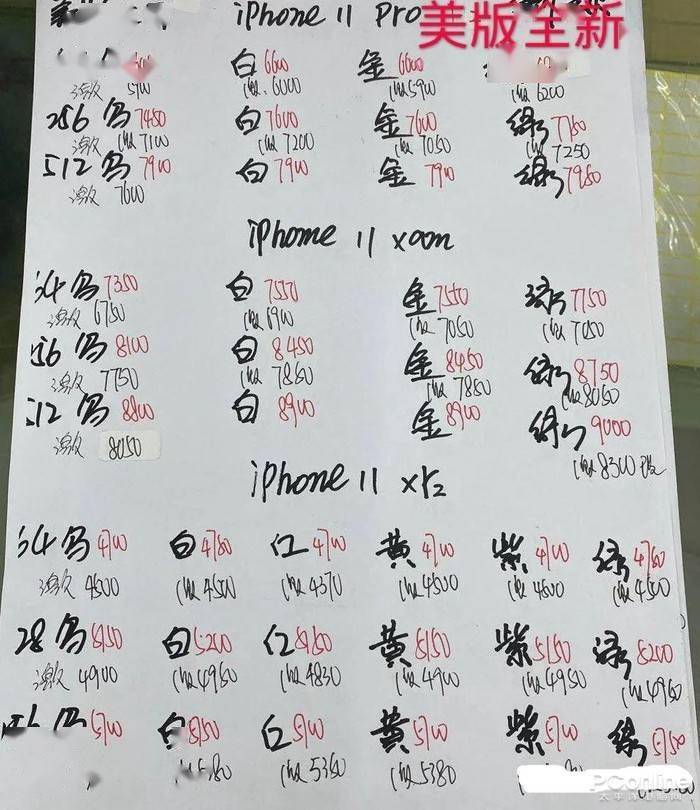 iPhone 11 Pro
美版全新
白 6600 金 6600
激 5900 激 6000 激 5900 激 6200
256 岛 7450 白 7600 金 7600 绿 7750
激 激 7100 激 7200 激 7050 激 7250
512 岛 7900 白 7900 金 7900 绿 7950
激 7600
iPhome 11 xoom
64 岛 7350 白 7550 金 7550 绿 7750
激 6750 激 6900 激 7050 激 7050
256 岛 8100 白 8450 金 8450 绿 8750
激 7750 激 7850 激 7850 激 8050
512 岛 8800 白 8900 金 8900 绿 9000
激 8050 激 8300
iPhone 11 xr2
64 岛 4700 白 4780 红 4700 黄 4700 紫 4700 绿 4750
激 4500 激 4500 激 4370 激 4500 激 4500 激 4500
28 岛 5150 白 5200 红 5150 黄 5150 紫 5150 绿 5200
激 4900 激 4950 激 4830 激 4900 激 4950 激 4950
5700 白 5750 红 5700 黄 5700 紫 5700 绿 5750
5380 激 5350 激 5380
PConline